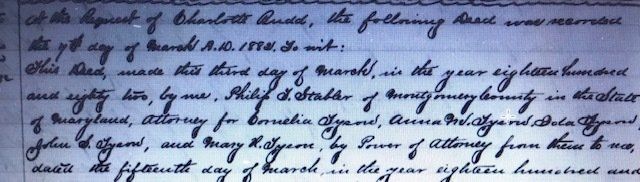 At the Request of Charlotte Rudd, the following Deed was recorded
the 7th day of March A.D. 1882. To wit:
This Deed, made this third day of March, in the year eighteen hundred
and eighty two, by me, Philip T. Stabler of Montgomery County in the State
of Maryland, Attorney for Cornelia Tyson, Anna M. Tyson, Ida Tyson,
John S. Tyson, and Mary R. Tyson, by Power of Attorney from them to me,
dated the fifteenth day of March, in the year eighteen hundred and